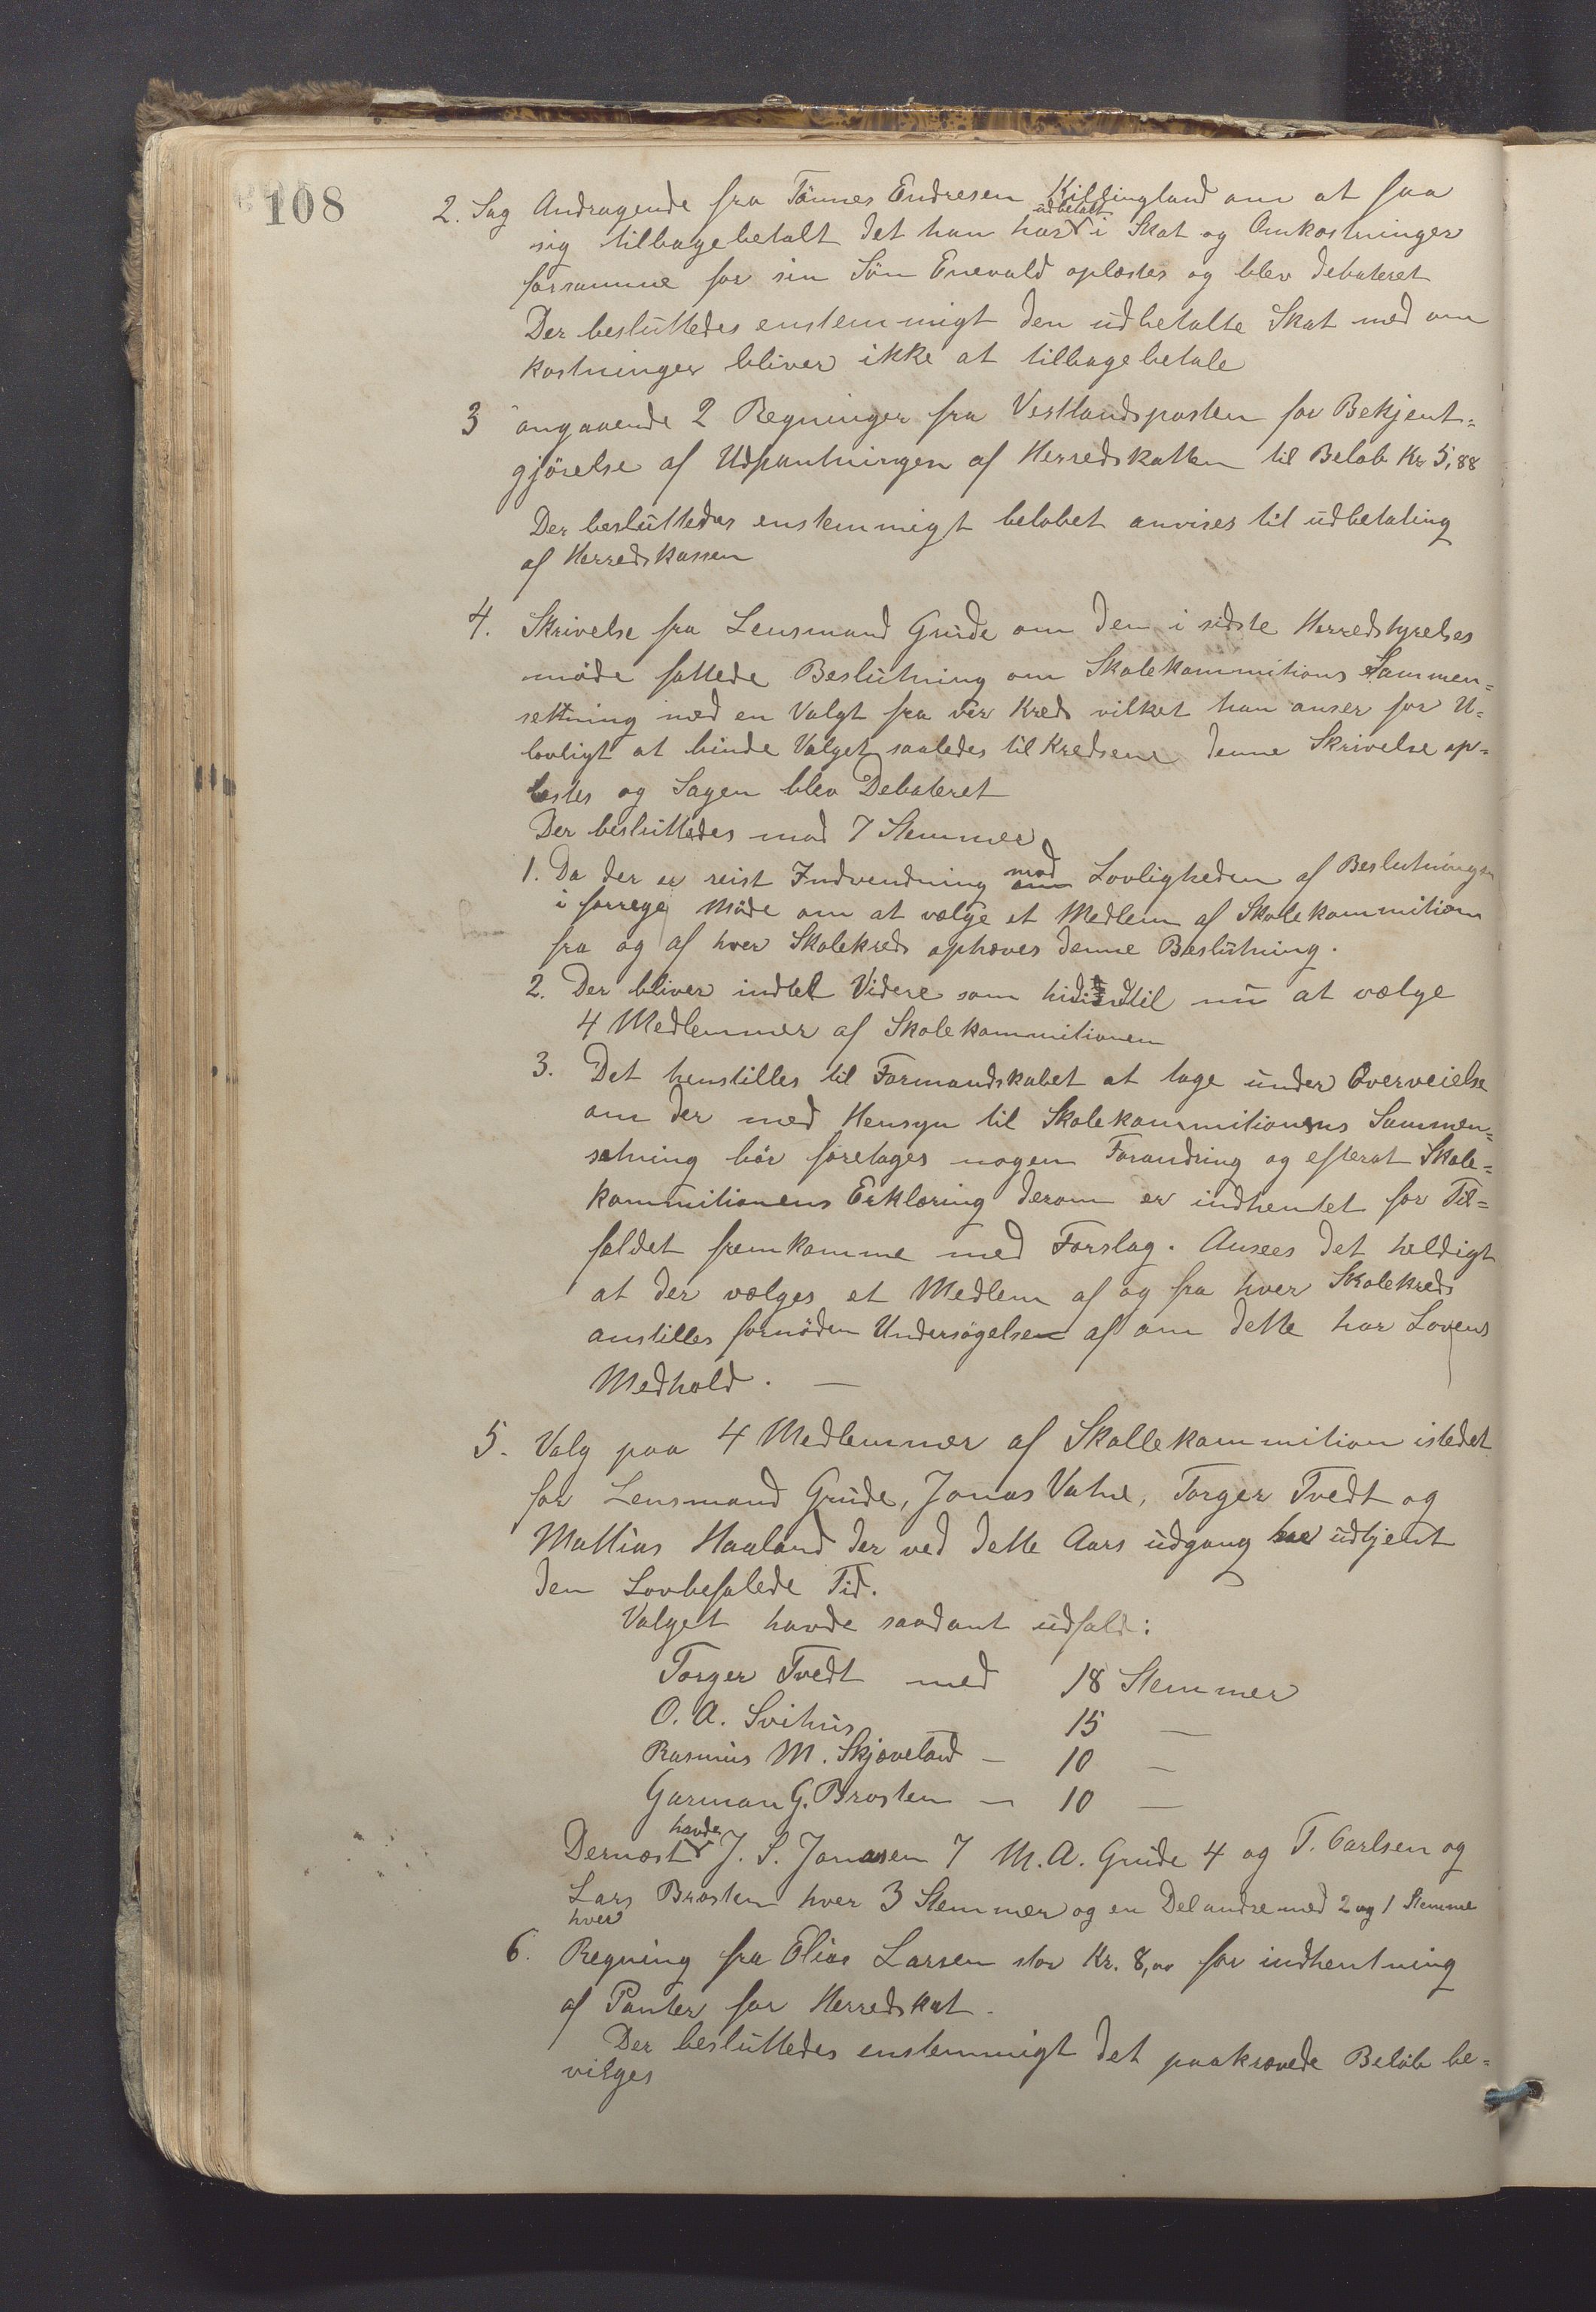 108
2. Sag Andragende fra Tönnes Endresen Killingland om at faa
sig tilbagebetalt det han har udbetalt i Skat og Omkostninger
forsamme for sin Sön Enevald oplæstes og blev debateret
Der besluttedes enstemmigt den udbetalte Skat med om
kostninger bliver ikke at tilbagebetale
3 angaaende 2 Regninger fra Vestlandsposten for Bekjent-
gjörelse af Udpantningen af Herredskatten til Beløb Kr 5,88
Der besluttedes enstemmigt beløbet anvises til udbetaling
af Herredskassen
4. Skrivelse fra Lensmand Grude om den i sidste Herredstyrelses
möde fattede Beslutning om Skolekommitions Sammen-
settning med en Valgt fra vær Kreds vilket han anser for U-
lovligt at binde Valget saaledes til Kredsene denne Skrivelse op-
læstes og Sagen blev Debateret
Der besluttedes mod 7 Stemmer
1. Da der er reist Indvendning mod om Lovligheden af Beslutningen
i forrege Möde om at vælge et Medlem af Skolekommitionen
fra og af hver Skolekreds ophæves denne Beslutning.
2. Der bliver indtil Videre som hidindtil nu at vælge
4 Medlemmer af Skolekommitionen
3. Det henstilles til Formandskabet at tage under Overveielse
om der med Hensyn til Skolekommitionens Sammen-
sætning bör foretages nogen Forandring og efterat Skole-
kommitionens Erklæring derom er indhentet for Til-
fældet fremkomme med Forslag. Ansees det heldigt
at der vælges et Medlem af og fra hver Skolekreds
anstilles fornöden Undersögelse af om dette har Lovens
Medhold. —
5. Valg paa 4 Medlemmer af Skollekommition istedet
for Lensmand Grude, Jonas Vatne, Torger Tvedt og
Mattias Haaland der ved dette Aars udgang har udtjent
den Lovbefalede Tid.
Valget havde saadant udfald:
Torger Tvedt med 18 Stemmer
O. A. Svihus 15 —
Rasmus M. Skjæveland — 10 —
Garman G. Brosten — 10 —
Dernæst havde J. S. Jonassen 7 M. A. Grude 4 og T. Carlsen og
Lars Brosten hver 3 Stemmer og en Del andre med 2 og 1 Stemme
hver
6. Regning fra Elias Larsen stor Kr. 8,00 for indhentning
af Panter for Herredskat.
Der besluttedes enstemmigt det paakrævede Beløb be-
vilges